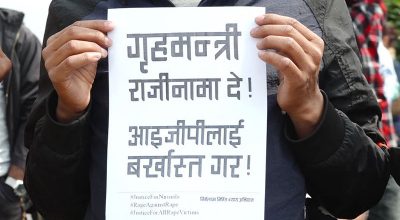 गृहमन्त्री
राजीनामा दे!
आइ.जी.पी.लाई
बर्खास्त गर!
#JusticeForNirmala
#RapeAgainstRage
#JusticeForAllRapeVictims